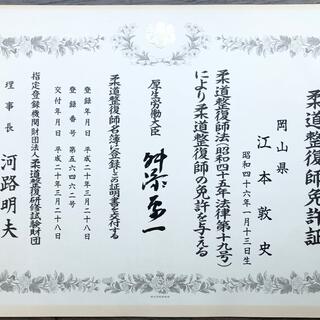 柔道整復師免許証
岡山県
江本敦史
昭和四十六年一月十三日生
柔道整復師法(昭和四十五年法律第十九号)
により柔道整復師の免許を与える
厚生労働大臣
舛添要一
柔道整復師名簿に登録しこの証明書を交付する
登録年月日 平成二十年三月二十八日
登録番号 第五六四六二号
交付年月日 平成二十年三月二十八日
指定登録機関財団法人柔道整復研修試験財団
理事長 河路明夫